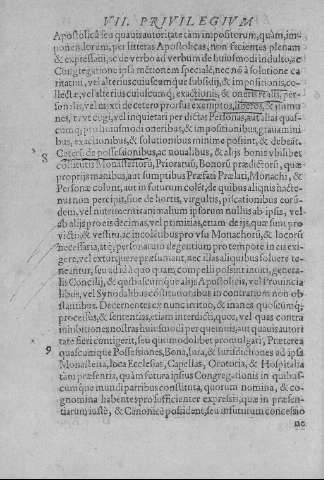 VII. PRIVILEGIVM
Apostolica seu quauis autoritate tam impositorum, quàm, im-
ponendorum, per litteras Apostolicas, non facientes plenam
& expressam, ac de verbo ad verbum de huiusmodi indulto, ac
Congregatione ipsa mētionem specialē, nec nō à solutione ca
ritatiui, vel alterius cuiuscumque subsidij, & impositionis, co-
llectæ, vel alterius cuiuscumque, exactionis, & oneris realis, per-
sonalis, vel mixti de cetero prorsus exemptos, liberos, & immu-
nes, neve cogi, vel inquietari per dictas Personas, aut alias quas-
cumq; pro huiusmodi oneribus, & impositionibus, grauaminі
bus, exactionibus & solutionibus minime possint, & debeāt.
8 Ceteris de possessionibus, ac noualibus, & alijs bonis vbilibet
consistutis Monasteriorū, Prioratuū, Bonorū prædictorū, quæ
proprijs manibus, aut sumptibus Præfati Prælati, Monachi, &
Personæ colunt, aut in futurum colēt, de quibus aliquis hacte-
nus non percipit, siue de hortis, virgultis, piscationibus eorū-
dem, vel nutrimentis animalium ipsorum nullus ab ipsis, vel
ab alijs pro eis decimas, vel primitias, etiam de ijs, quæ sunt pro
victu, & vestitu, ac incobctibus pro vsu Monachorū, & locis
necessaria,
exi-
gere, vel extorquere præsumant, nec illas aliquibus soluere te-
neantur, seu ad id à quoquam, compelli possint inuiti, genera-
lis Concilij, & quibuscumque alijs Apostolicis, vel Prouincia
libus, vel Synodalibus constitutionibus in contrarium non ob-
stantibus. Decernentes ex nunc irritos, & inanes quoscūmq;
processus, & sententias, etiam interdicti, quos, vel quas contra
inhibitiones nostras huiusmodi per quemuis, aut quauis autori
tate fieri contigerit, seu quomodolibet promulgari, Præterea
9 quascumque Possessiones, Bona, Iura, & Iurisdictiones ad ipsa
Monasteria, loca Ecclesias, Capellas, Oratoria, & Hospitalia
tàm præsentia, quàm futura ipsius Congregationis in quibus-
cumque mundi partibus constituta, quorum nomina, & co-
gnomina habentes pro sufficienter expressis, quæ in præsen-
tiarum iustè, & Canonicè possident, seu in futurum concessio
ne